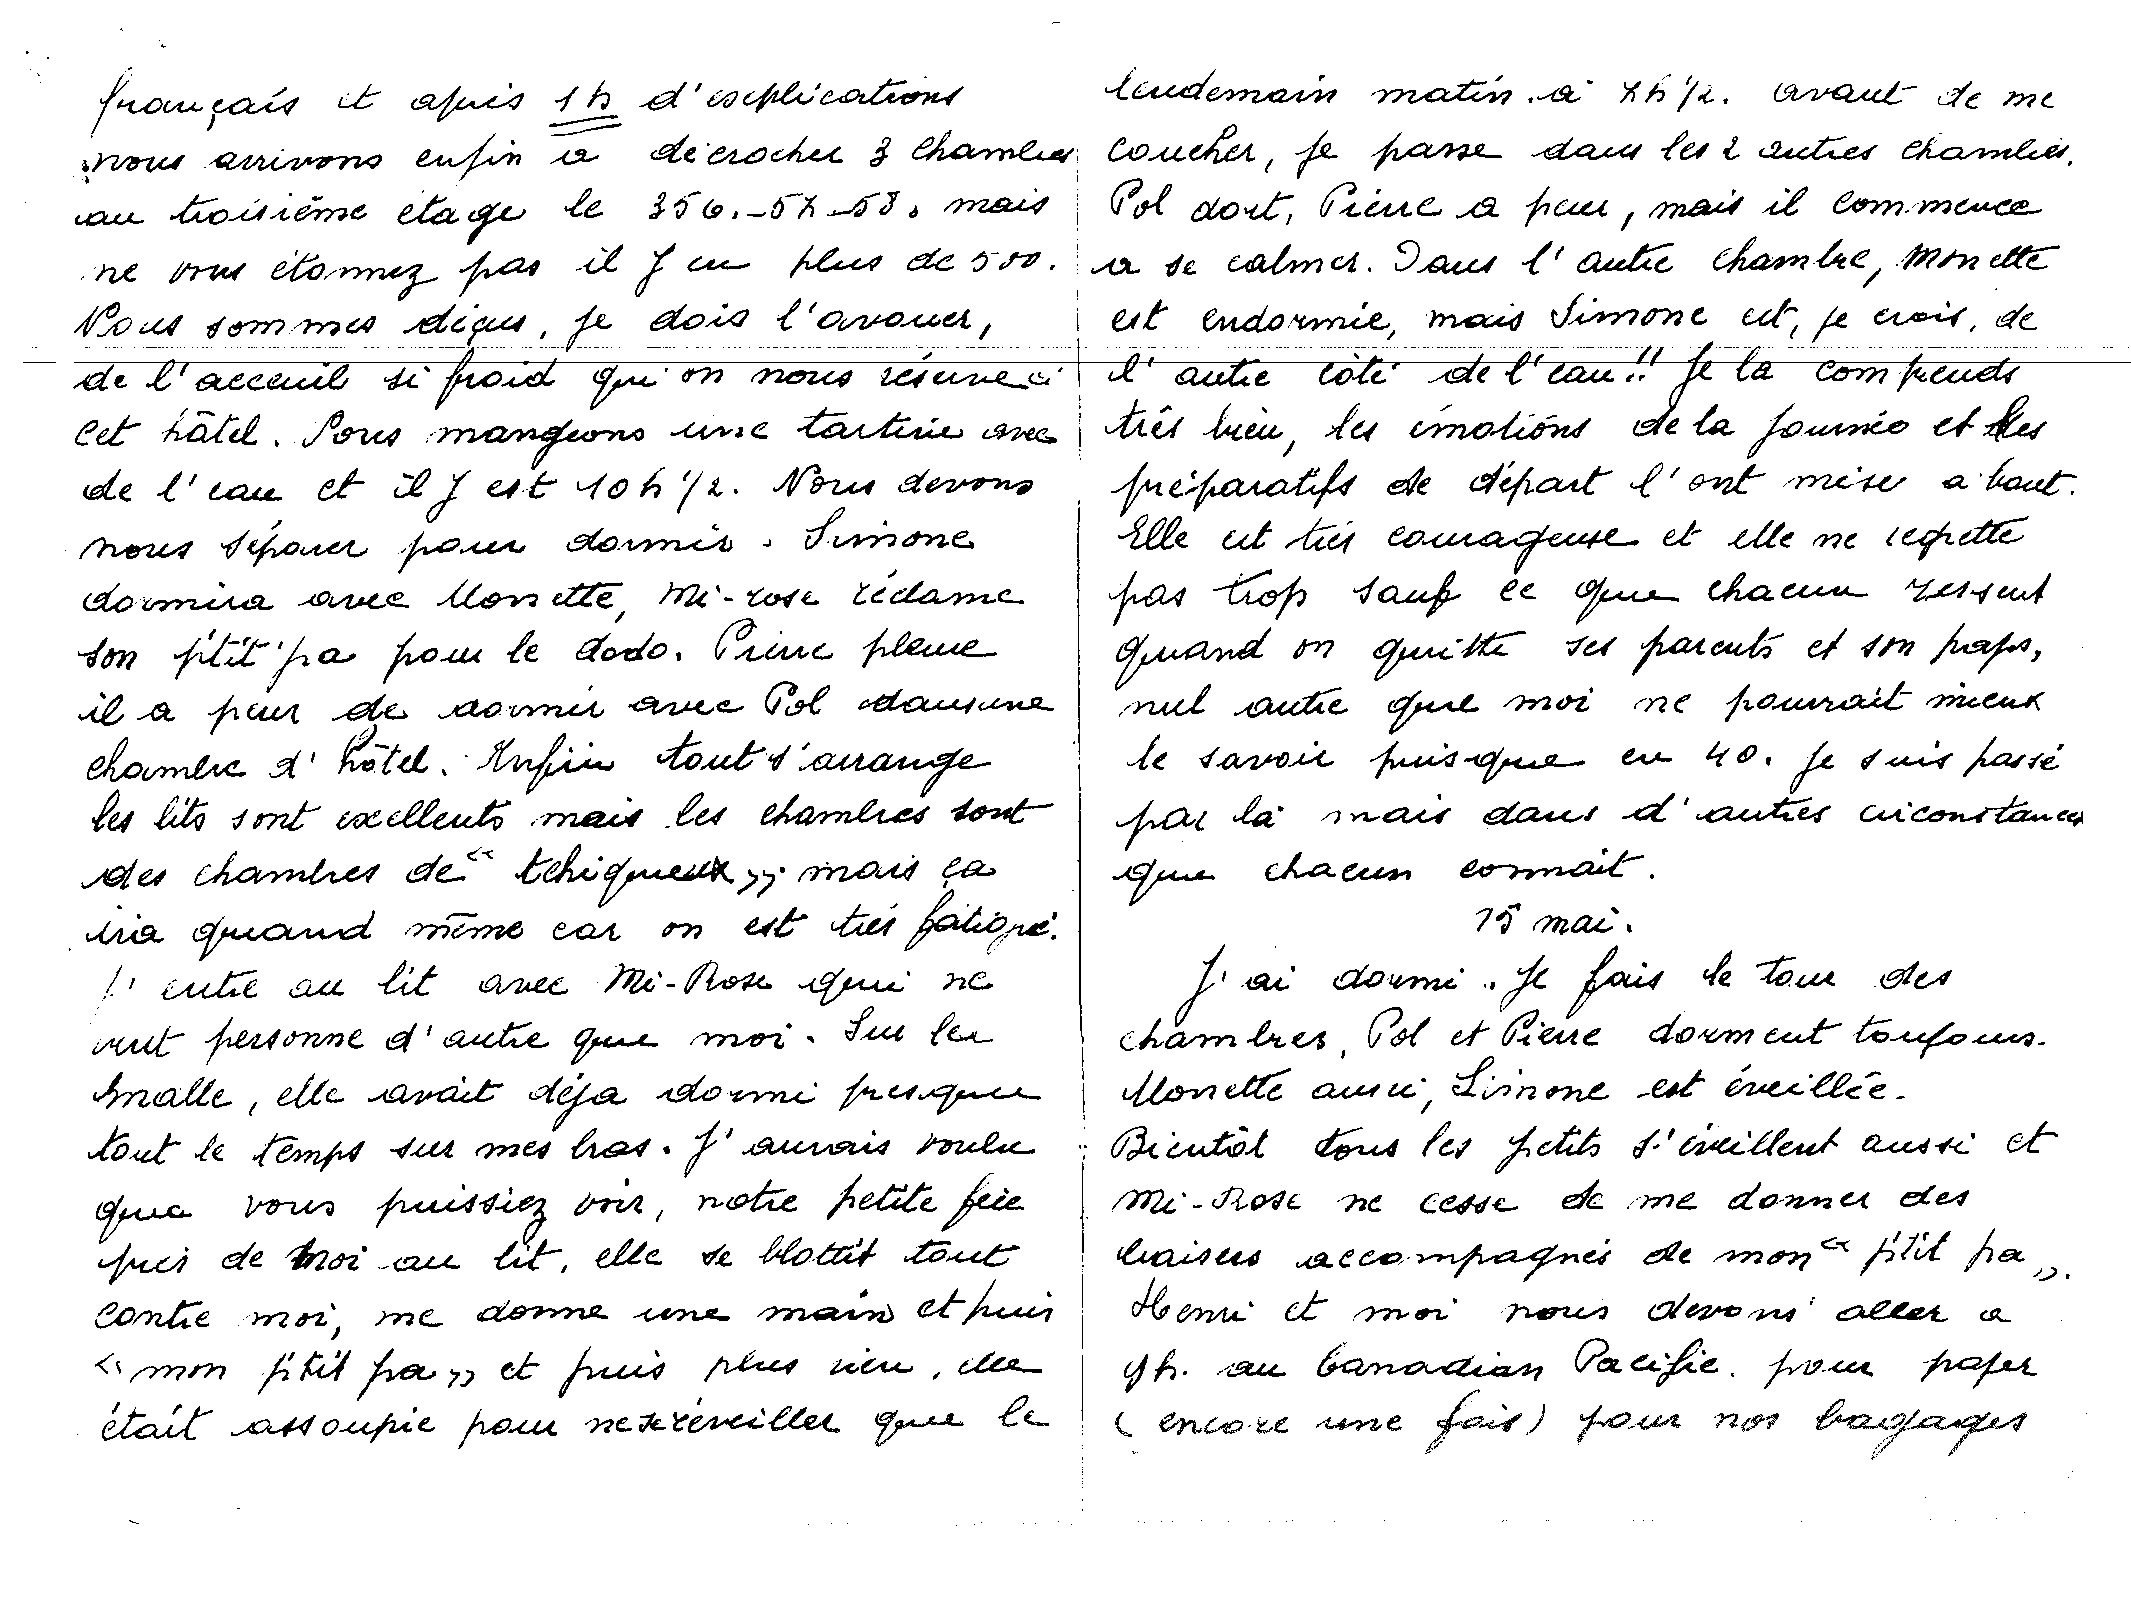 français et après 1h d'explications
nous arrivons enfin a décrocher 3 chambres
au troisième étage le 356.-57-58. mais
ne vous étonnez pas il y en plus de 500.
Nous sommes déçus, je dois l'avouer,
de l'acceuil si froid qu'on nous réserve à
cet hôtel. Nous mangeons une tartine avec
de l'eau et il y est 10h 1/2. Nous devons
nous séparer pour dormir. Simone
dormira avec Monette, Mi-rose réclame
son p'tit pa pour le dodo. Pierre pleure
il a peur de dormir avec Pol dans une
chambre d'hôtel. Enfin tout s'arrange
les lits sont excellents mais les chambres sont
des chambres de "tchiqueux,,; mais ça
ira quand même car on est très fatigué.
J'entre au lit avec Mi-Rose qui ne
veut personne d'autre que moi. Sur la
malle, elle avait déja dormi presque
tout le temps sur mes bras. J'aurais voulu
que vous puissiez voir, notre petite fée
près de moi au lit, elle se blottit tout
contre moi, me donne une main et puis
"mon p'tit pa,, et puis plus rien, elle
était assoupie pour ne se réveiller que le
lendemain matin à 7h 1/2. avant de me
coucher, je passe dans les 2 autres chambres.
Pol dort, Pierre a peur, mais il commence
a se calmer. Dans l'autre chambre, Monette
est endormie, mais Simone est, je crois, de
l'autre côté de l'eau!! Je la comprends
très bien, les émotions de la journée et les
préparatifs de départ l'ont mise a bout.
Elle est très courageuse et elle ne regrette
pas trop sauf ce que chacun ressent
quand on quitte ses parents et son pays,
nul autre que moi ne pourrait mieux
le savoir puisque en 40. je suis passé
par là mais dans d'autres circonstances
que chacun connait.
15 mai.
J'ai dormi. Je fais le tour des
chambres, Pol et Pierre dorment toujours.
Monette aussi, Simone est éveillée.
Bientôt tous les petits s'éveillent aussi et
Mi-Rose ne cesse de me donner des
baisers accompagnés de mon "p'tit pa,,.
Henri et moi nous devons aller a
9h. au Canadian Pacific. pour payer
(encore une fois) pour nos bagages